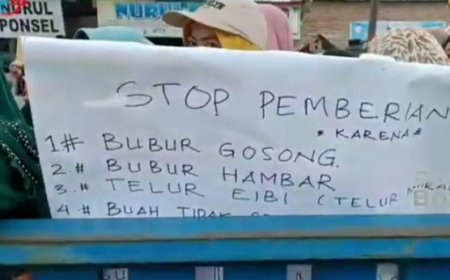 NURUL
PONSEL
NURUL
STOP PEMBERIAN
* KARENA *
1 # BUBUR GOSONG.
2 # BUBUR HAMBAR
3 # TELUR EIBI (TELUR
4 # BUAH TIDAK